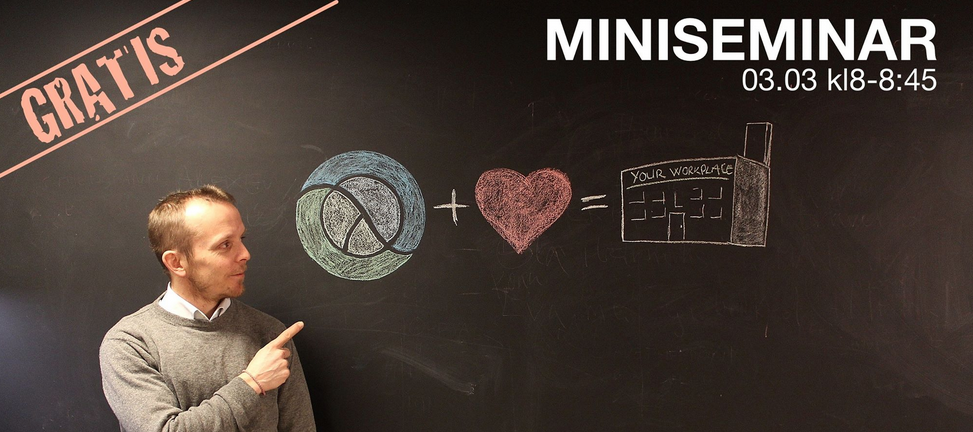 GRATIS
MINISEMINAR
03.03 kl8-8:45
YOUR WORKPLACE